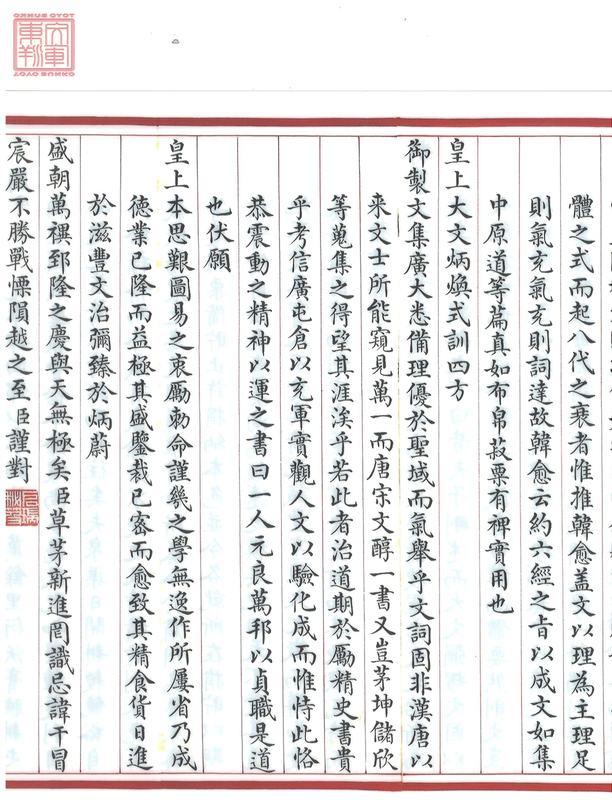 體之式而起八代之衰者惟推韓愈盖文以理為主理足
則氣充氣充則詞達故韓愈云約六經之旨以成文如集
中原道等篇真如布帛菽粟有裨實用也
皇上大文炳煥式訓四方
御製文集廣大悉備理優於聖域而氣舉乎文詞固非漢唐以
来文士所能窺見萬一而唐宋文醇一書又豈茅坤儲欣
等蒐集之得望其涯涘乎若此者治道期於勵精史書貴
乎考信廣屯倉以充軍實觀人文以驗化成而惟恃此恪
恭震動之精神以運之書曰一人元良萬邦以貞職是道
也伏願
皇上本思艱圖易之衷勵勅命謹幾之學無逸作所屢省乃成
徳業已隆而益極其盛鑒裁已密而愈致其精食貨日進
於滋豐文治彌臻於炳蔚
盛朝萬禩郅隆之慶與天無極矣臣草茅新進罔識忌諱干冒
宸嚴不勝戰慄隕越之至臣謹對
TOYO BUNKO